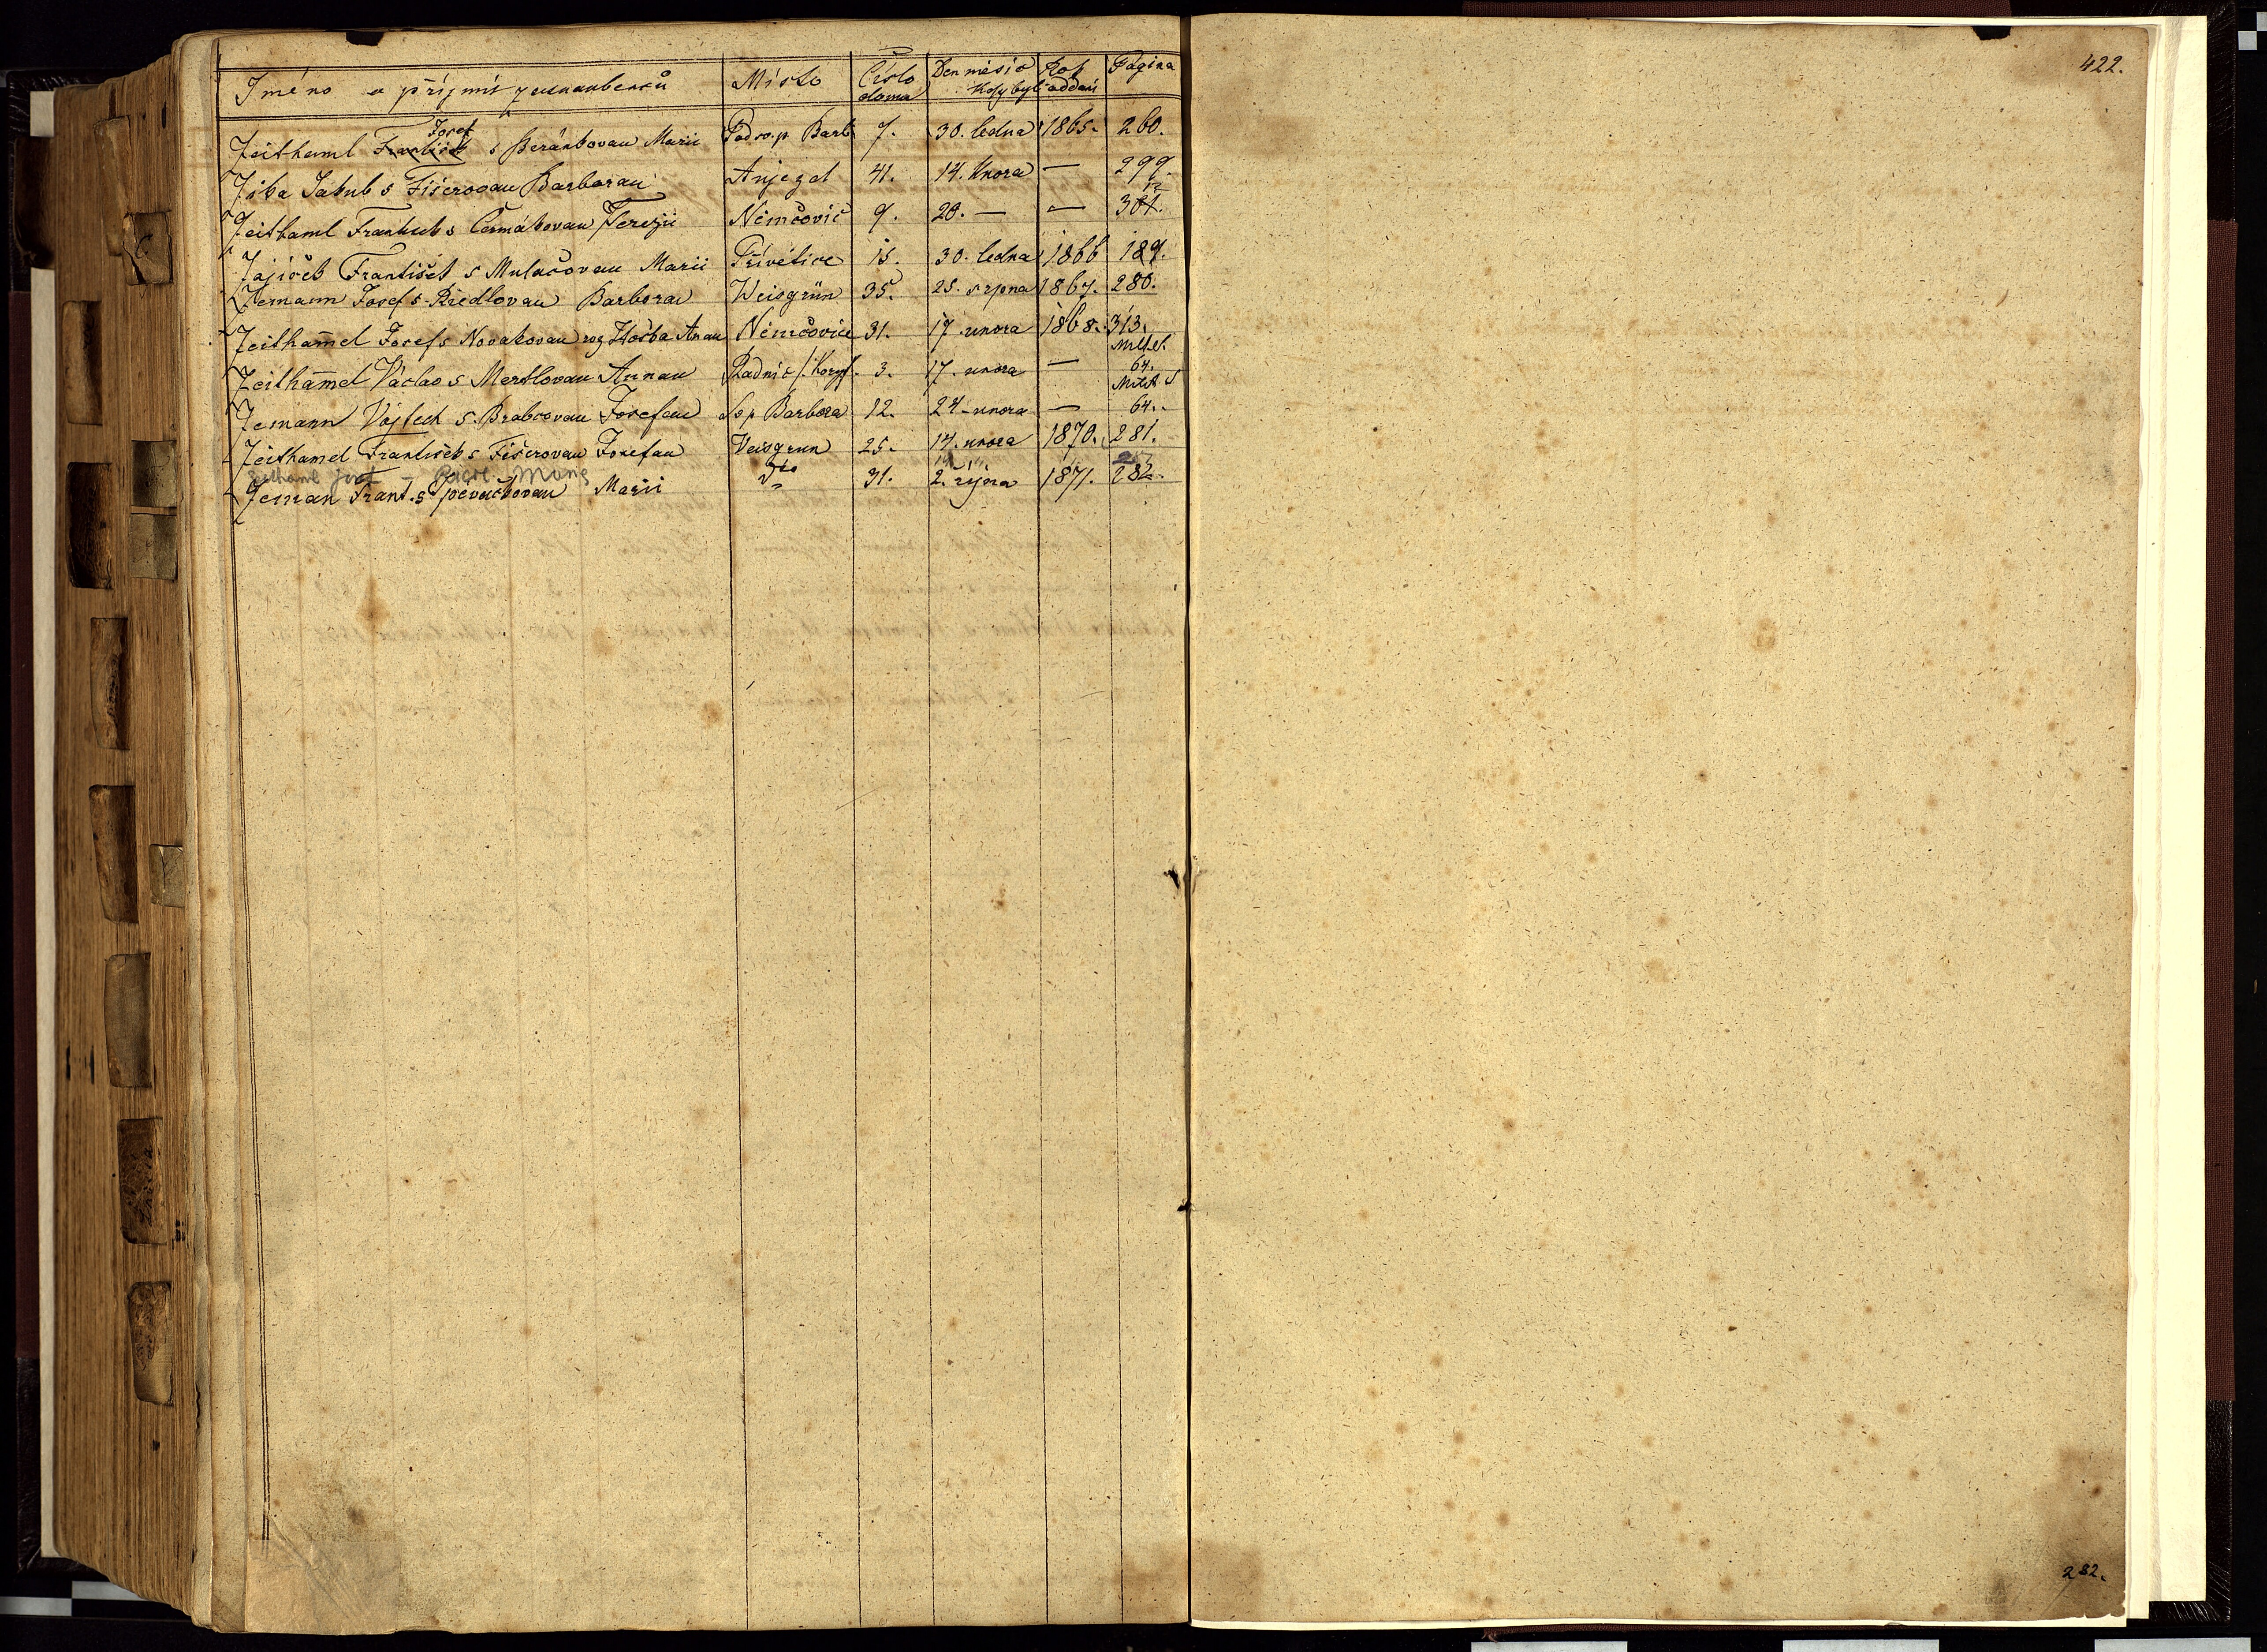 Jméno a příjmí Místo Číslo domu Den měsíc Rok Kdy byli oddáni Pagina
Zeithaml František Josef s Beránkovau Marii Podsv.p Barb 7. 30. ledna 1865. 260.
Zíba Jakub s Fišerovau Barborau Aujezd 41. 14. Unora — 299.
Zeithaml Frantisek s Čermákovau Terezii Němčovic 9. 28. — — 301.
Zajíček František s Mulačovau Marii Přívětice 15. 30. ledna 1866 189.
Zemann Josef s Riedlovau Barborau Weisgrün 35. 25. srpna 1867. 280.
Zeithamel Josef s Novakovau roz Anau Němčovice 31. 17. unora 1868. 313.
Zeithamel Václav s Mertlovau Annau Radnic 3. 17. unora — 64.
Zemann Vojtech s. Brabcovau Josefau Sv p Barbora 12. 24. unora — 64.
Zeithamel František s Fišerovau Josefau Weisgrun 25. 14. unora 1870. 281.
Zeithaml Josef — Marie
Zeman Frant. s Spěváčkovau Marii dto 31. 2. října 1871. 282.
422.
282.